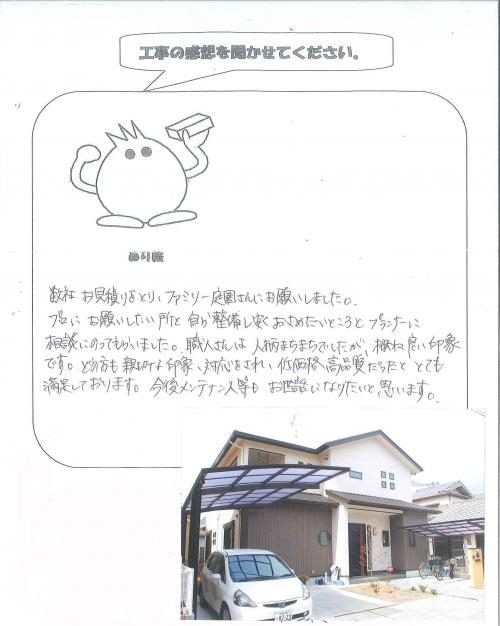 工事の感想を聞かせてください。
ぬり絵
数社 お見積りをとり、ファミリー庭園さんにお願いしました。
プロに お願いしたい所と 自分で整備し安くおさめたいところとプランナーに
相談にのってもらいました。職人さんは 人柄まちまちでしたが、概ね良い印象
です。どの方も 親切な印象、対応をされ、低価格、高品質だったと とても
満足しております。今後メンテナンス等も お世話になりたいと思います。